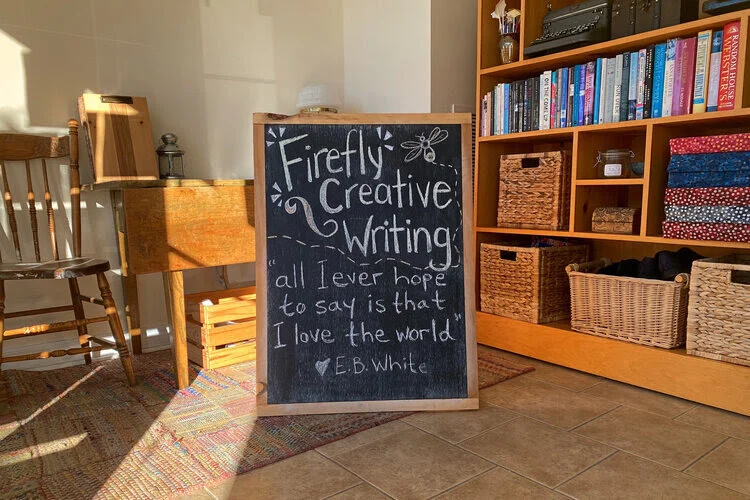 Firefly
Creative
Writing
"all I ever hope
to say is that
I love the world"
E.B. White
RANDOM HOUSE
WEBSTER'S